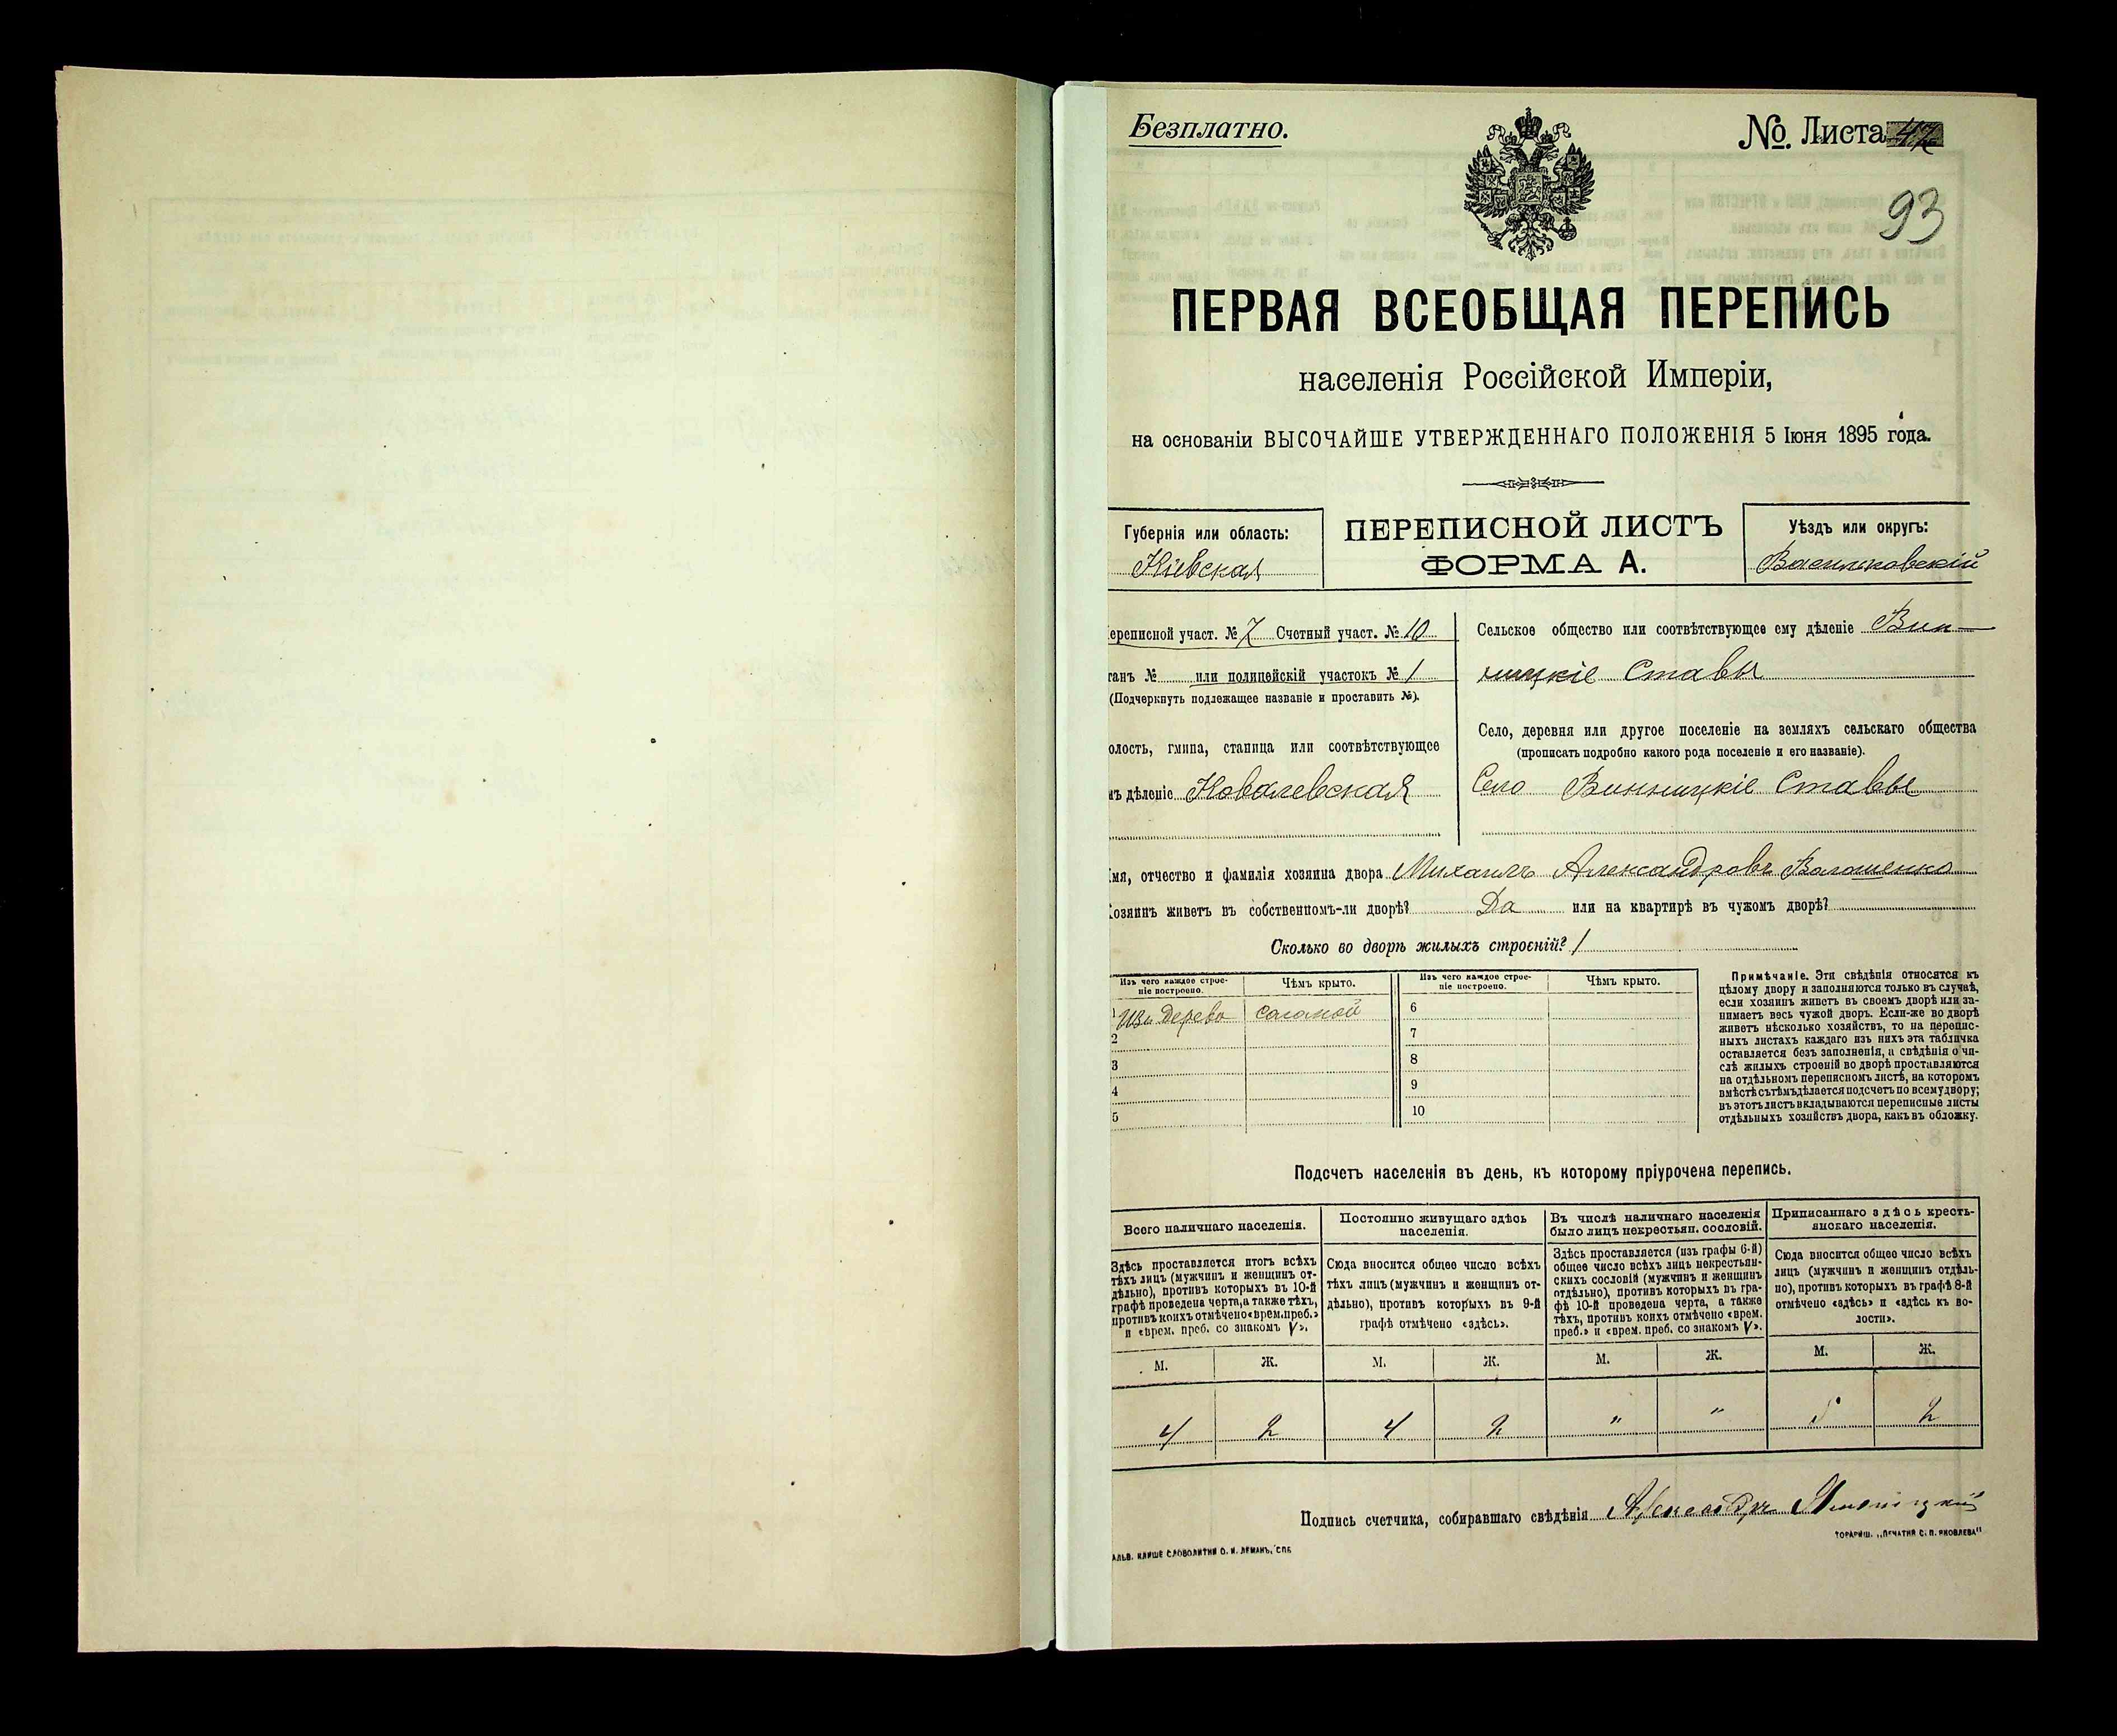 Безплатно.
No. Листа 47
93
ПЕРВАЯ ВСЕОБЩАЯ ПЕРЕПИСЬ
населенія Россійской Имперіи,
на основаніи ВЫСОЧАЙШЕ УТВЕРЖДЕННАГО ПОЛОЖЕНІЯ 5 Іюня 1895 года.
Губернія или область:
Кіевская
ПЕРЕПИСНОЙ ЛИСТЪ
ФОРМА А.
Уѣздъ или округъ:
Васильковскій
ереписной участ. № 7 Счетный участ. № 10
танъ № или полицейскій участокъ № 1
(Подчеркнуть подлежащее названіе и проставить №).
олость, гмина, станица или соотвѣтствующее
ъ дѣленіе Ковалевская
Сельское общество или соотвѣтствующее ему дѣленіе Вин-
ницкіе Ставы
Село, деревня или другое поселеніе на земляхъ сельскаго общества
(прописать подробно какого рода поселеніе и его названіе).
Село Винницкіе Ставы
мя, отчество и фамилія хозяина двора Михаилъ Александровъ Волошенко
озяинъ живетъ въ собственномъ-ли дворѣ? Да или на квартирѣ въ чужомъ дворѣ?
Сколько во дворѣ жилыхъ строеній? 1
Изъ чего каждое строе-
ніе построено.
Чѣмъ крыто.
Изъ чего каждое строе-
ніе построено.
Чѣмъ крыто.
1 Изъ дерева соломой
2
3
4
5
6
7
8
9
10
Примѣчаніе. Эти свѣдѣнія относятся къ
цѣлому двору и заполняются только въ случаѣ,
если хозяинъ живетъ въ своемъ дворѣ или за-
нимаетъ весь чужой дворъ. Если-же во дворѣ
живетъ нѣсколько хозяйствъ, то на перепис-
ныхъ листахъ каждаго изъ нихъ эта табличка
оставляется безъ заполненія, а свѣдѣнія о чи-
слѣ жилыхъ строеній во дворѣ проставляются
на отдѣльномъ переписномъ листѣ, на которомъ
вмѣстѣ съ тѣмъ дѣлается подсчетъ по всему двору;
въ этотъ листъ вкладываются переписные листы
отдѣльныхъ хозяйствъ двора, какъ въ обложку.
Подсчетъ населенія въ день, къ которому пріурочена перепись.
Всего наличнаго населенія.
Здѣсь проставляется итогъ всѣхъ
тѣхъ лицъ (мужчинъ и женщинъ от-
дѣльно), противъ которыхъ въ 10-й
графѣ проведена черта, а также тѣхъ,
противъ коихъ отмѣчено «врем. преб.»
и «врем. преб. со знакомъ V».
Постоянно живущаго здѣсь
населенія.
Сюда вносится общее число всѣхъ
тѣхъ лицъ (мужчинъ и женщинъ от-
дѣльно), противъ которыхъ въ 9-й
графѣ отмѣчено «здѣсь».
Въ числѣ наличнаго населенія
было лицъ некрестьян. сословій.
Здѣсь проставляется (изъ графы 6-й)
общее число всѣхъ лицъ некрестьян-
скихъ сословій (мужчинъ и женщинъ
отдѣльно), противъ которыхъ въ гра-
фѣ 10-й проведена черта, а также
тѣхъ, противъ коихъ отмѣчено «врем.
преб.» и «врем. преб. со знакомъ V».
Приписаннаго здѣсь кресть-
янскаго населенія.
Сюда вносится общее число всѣхъ
лицъ (мужчинъ и женщинъ отдѣль-
но), противъ которыхъ въ графѣ 8-й
отмѣчено «здѣсь» и «здѣсь къ во-
лости».
М. Ж. М. Ж. М. Ж. М. Ж.
4 2 4 2 " " 5 2
Подпись счетчика, собиравшаго свѣдѣнія Александръ
АЛЬВ. КЛИШЕ СЛОВОЛИТНИ О. И. ЛЕМАНЪ, СПБ
ТОВАРИЩ. „ПЕЧАТНЯ С. П. ЯКОВЛЕВА"